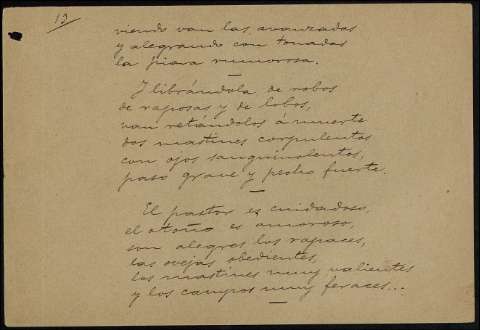 12
viendo van las avanzadas
y alegrando con tonadas
la piara rumorosa.
Y librándola de robos
de raposas y de lobos,
van retándolos á muerte
dos mastines corpulentos
con ojos sanguinolentos,
paso grave y pecho fuerte.
El pastor es cuidadoso,
el otoño es amoroso,
son alegres los rapaces,
las ovejas obedientes,
los mastines muy valientes
y los campos muy feraces...